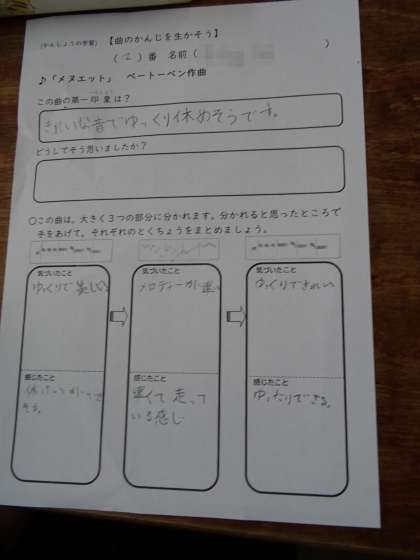 (かんしょうの学習) 【曲のかんじを生かそう】
( 2 ) 番 名前 ( )
♪「メヌエット」 ベートーベン作曲
この曲の第一印象は?
きれいな音でゆっくり休めそうです。
どうしてそう思いましたか?
○この曲は、大きく3つの部分に分かれます。分かれると思ったところで
手をあげて、それぞれのとくちょうをまとめましょう。
気づいたこと
ゆっくりで美しい
感じたこと
そう。
気づいたこと
メロディーが速い
感じたこと
速くて走って
いる感じ
気づいたこと
ゆっくりできれい
感じたこと
ゆったりできる。